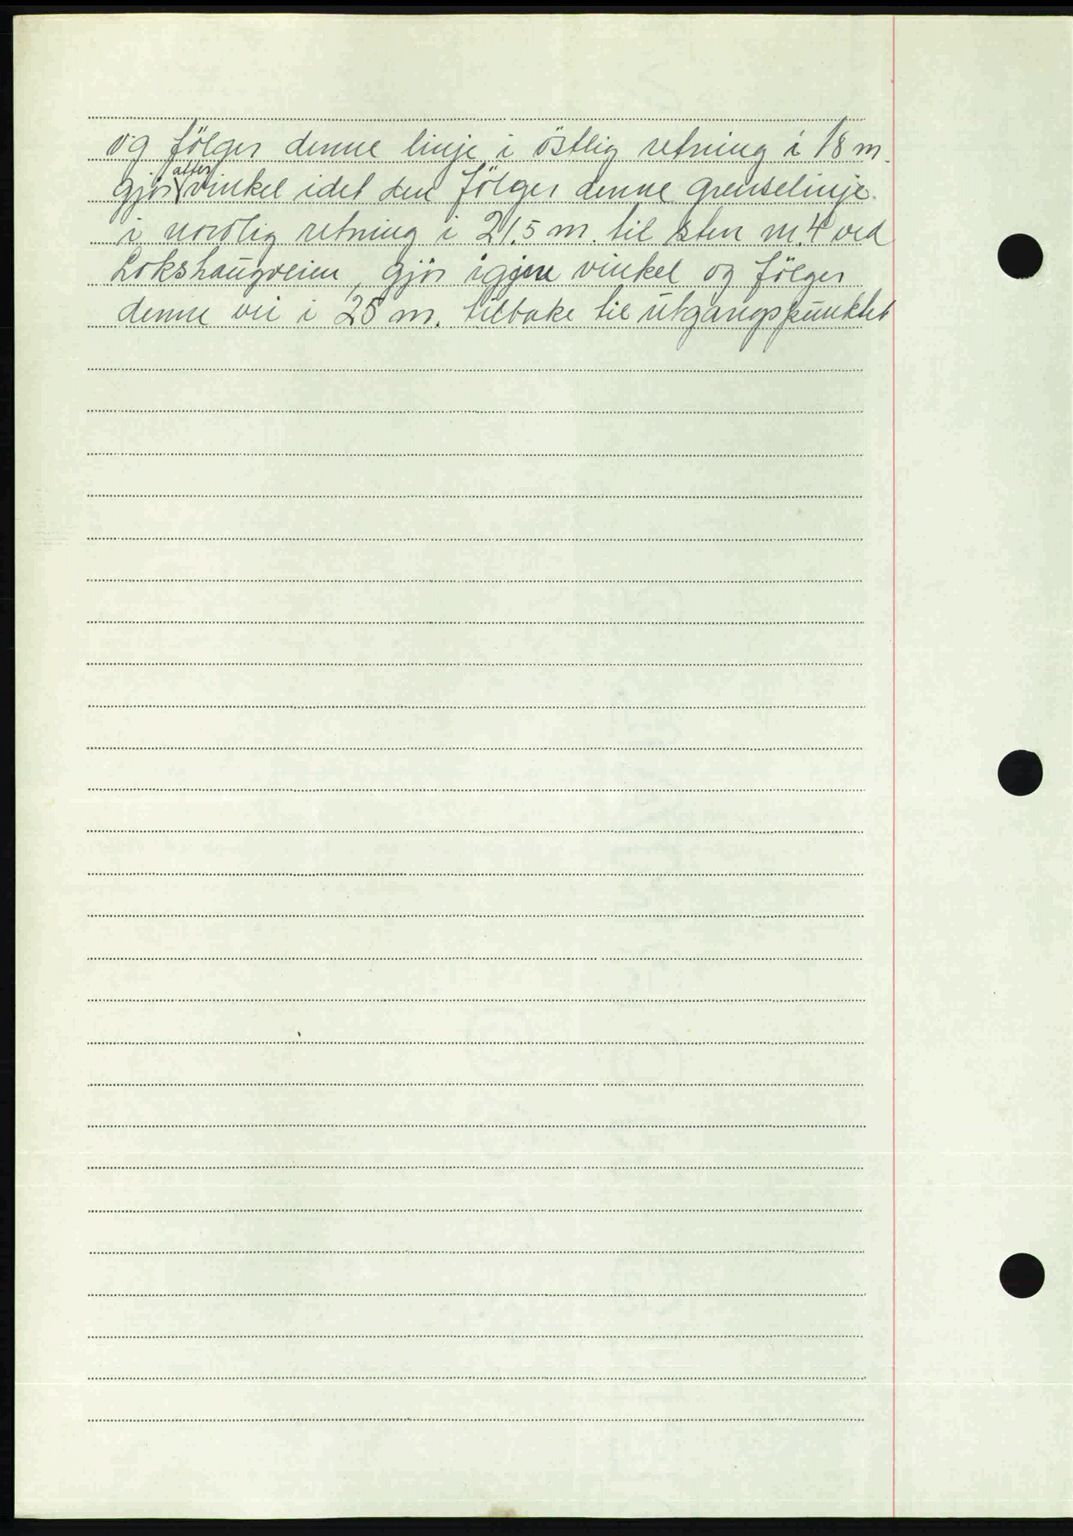 og følger denne linje i østlig retning i 18 m.
gjör atter vinkel idet den følger denne grenselinje
i nordlig retning i 21.5 m. til sten m. 4 ved
Lokshaugveien, gjör igjen vinkel og følger
denne vei i 25 m. tilbake til utgangspunktet